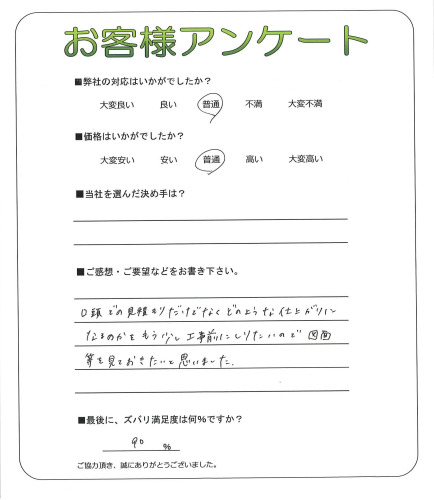 お客様アンケート
■弊社の対応はいかがでしたか？
大変良い 良い 普通 不満 大変不満
■価格はいかがでしたか？
大変安い 安い 普通 高い 大変高い
■当社を選んだ決め手は？
■ご感想・ご要望などをお書き下さい。
口頭での見積もりだけでなくどのような仕上がりに
なるのかをもう少し工事前にしりたいので 図面
等を見ておきたいと思いました.
■最後に、ズバリ満足度は何％ですか？
90 %
ご協力頂き、誠にありがとうございました。